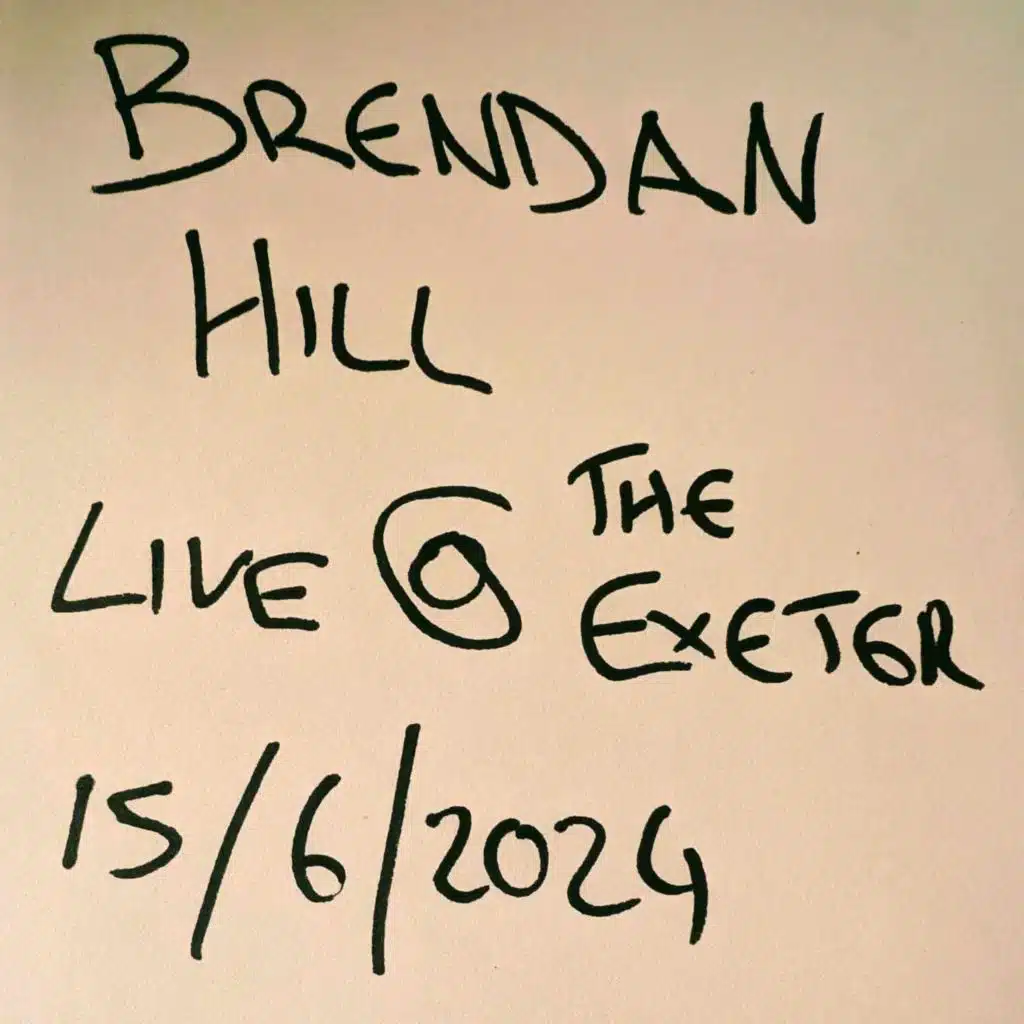 BRENDAN
HILL
LIVE @ THE
EXETER
15/6/2024